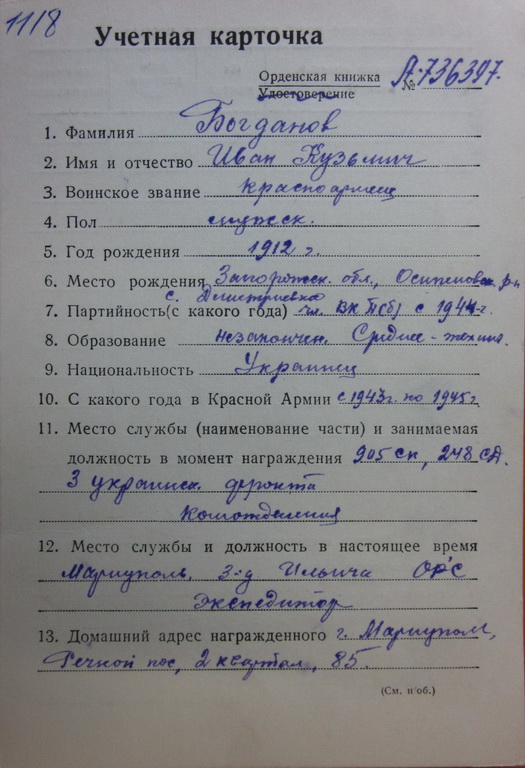 1118
Учетная карточка
Орденская книжка
Удостоверение № А-736397.
1. Фамилия Богданов
2. Имя и отчество Иван Кузьмич
3. Воинское звание красноармеец
4. Пол мужск.
5. Год рождения 1912 г.
6. Место рождения Запорожск. обл., Осипенковск. р-н
с. Дмитриевка
7. Партийность(с какого года) чл. ВКП(б) с 1944 г.
8. Образование незакончен. Среднее-техни.
9. Национальность Украинец
10. С какого года в Красной Армии с 1943 г. по 1945 г.
11. Место службы (наименование части) и занимаемая
должность в момент награждения 905 сп, 248 сд.
3 украинск. фронта
комотделения
12. Место службы и должность в настоящее время
Мариуполь, з-д Ильича ОРС
Экспедитор
13. Домашний адрес награжденного г. Мариуполь,
Речной пос, 2 квартал, 85.
(См. н/об.)